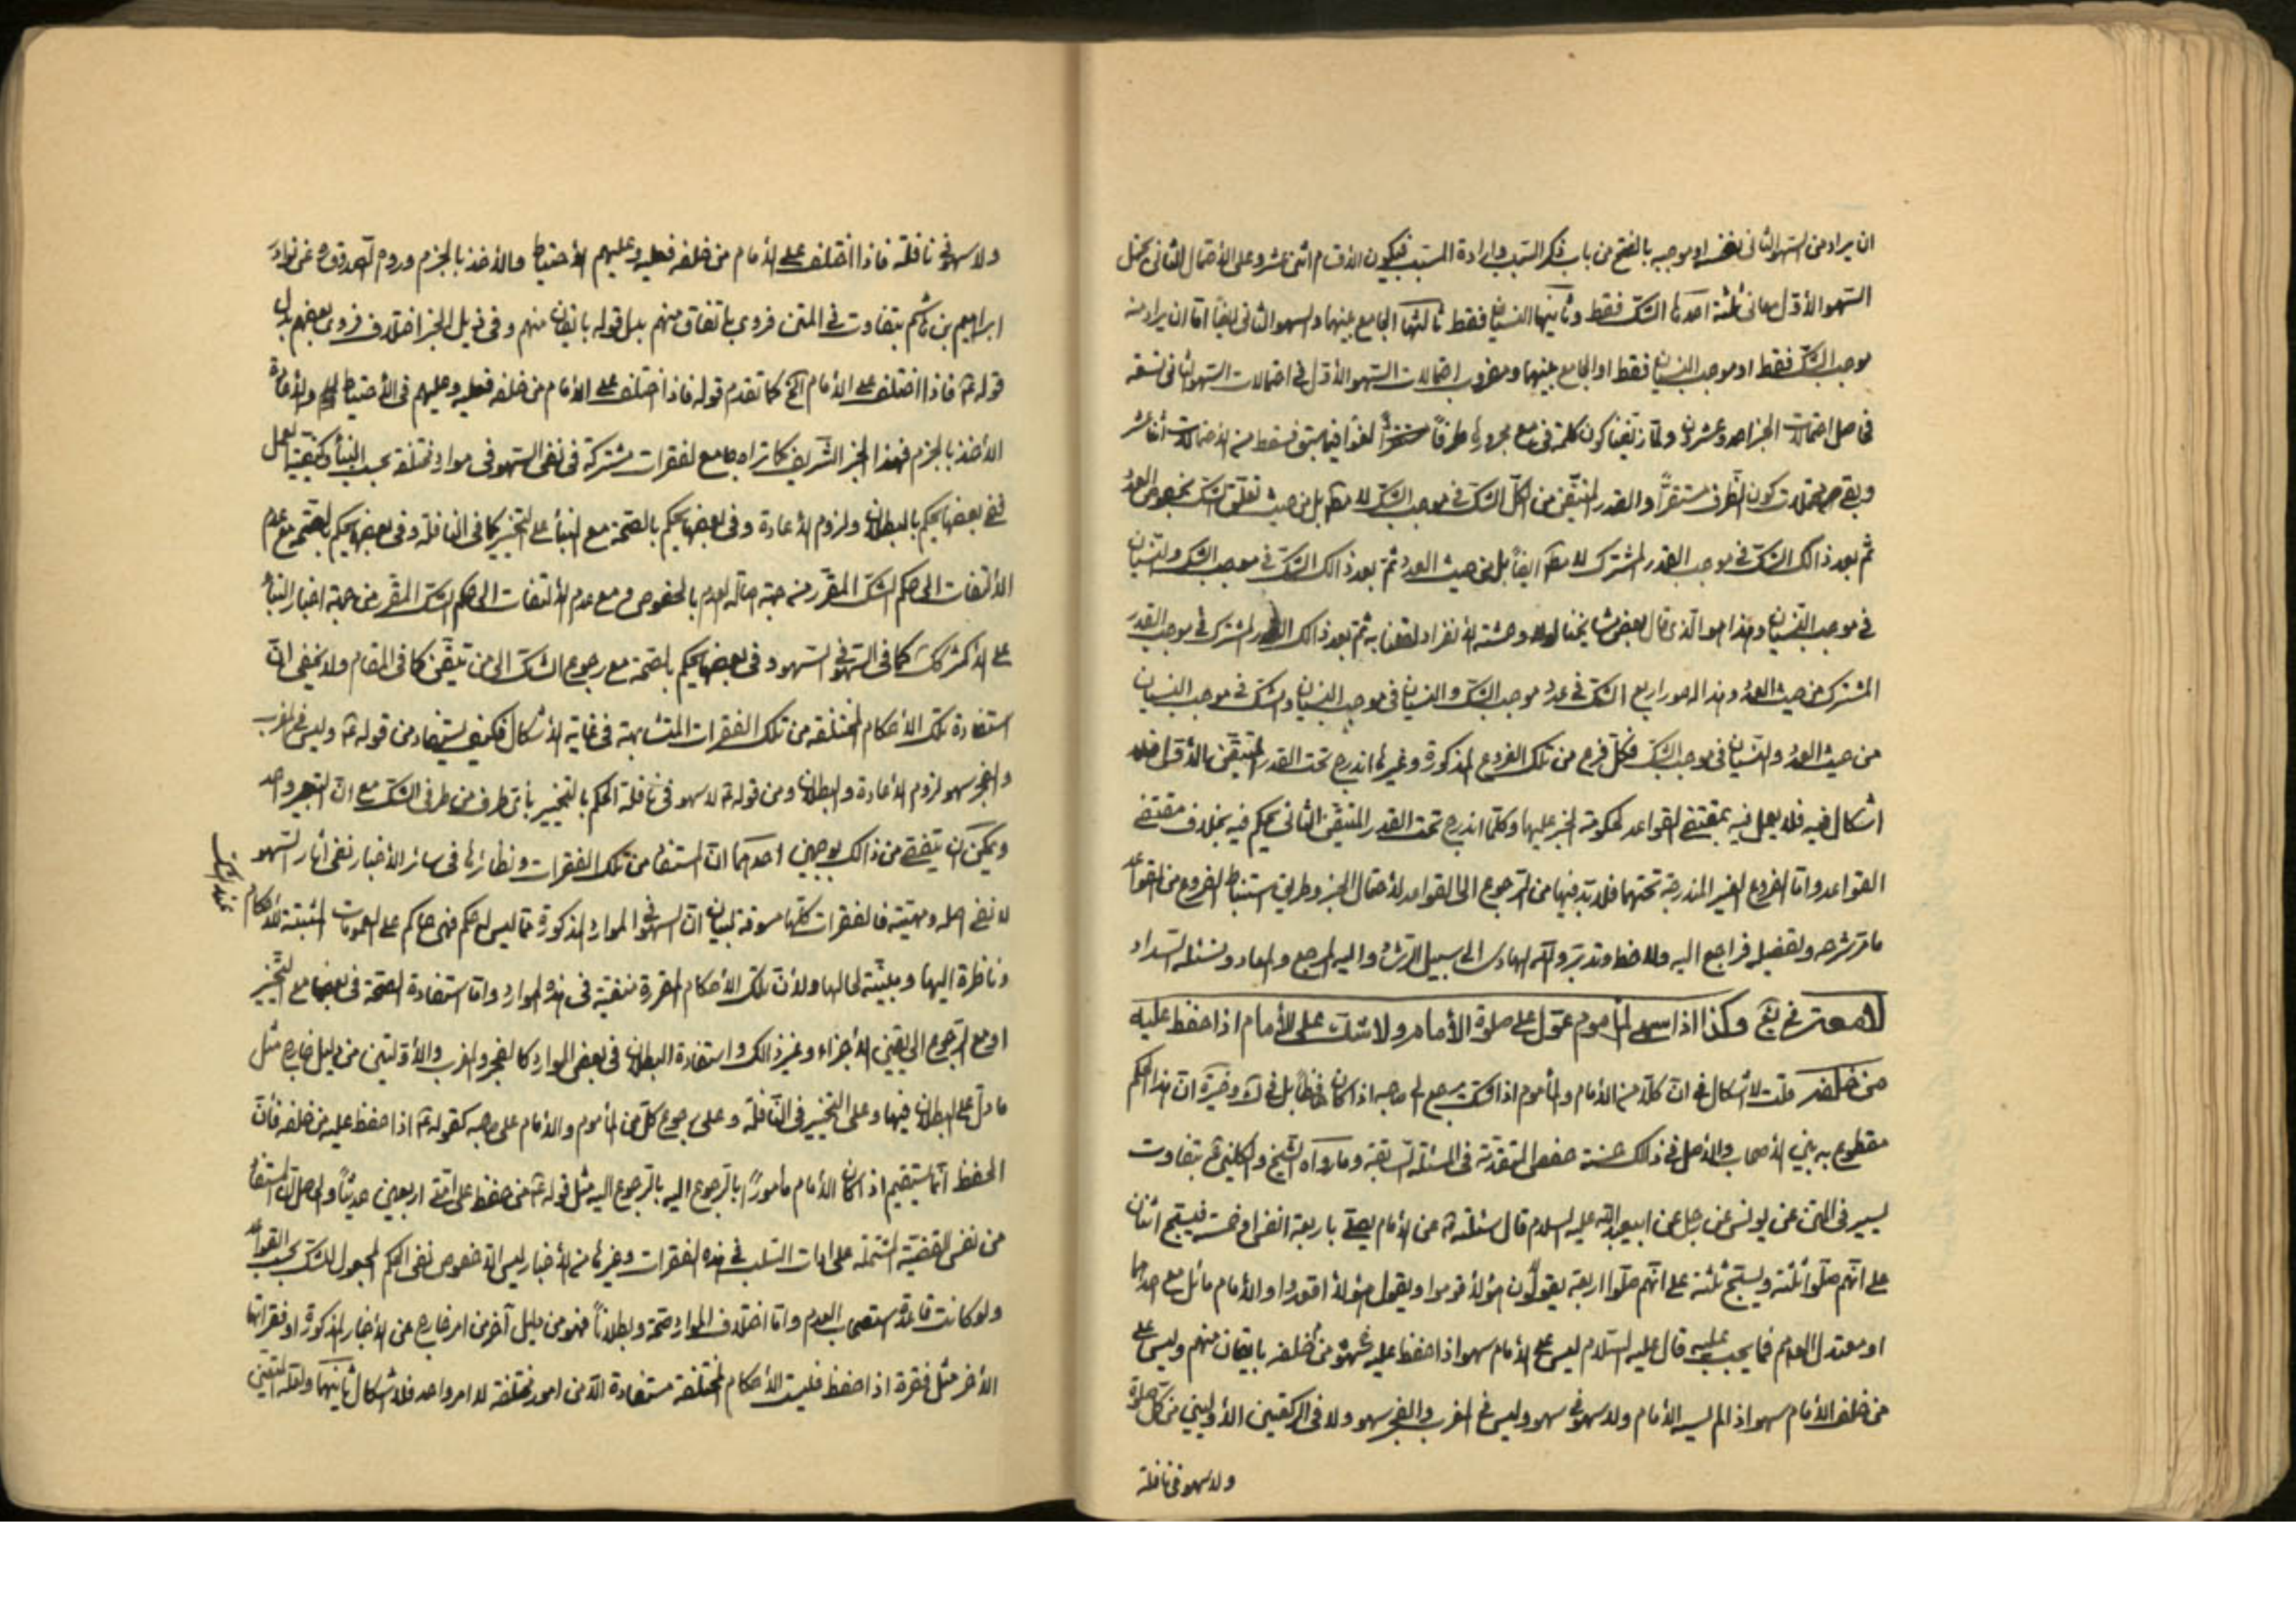 ان يراد من السهو الثانى نفسه او موجبه بالفتح من باب ذكر السبب و ارادة المسبب فيكون الاقسام اثنى عشر و على الاحتمال الثانى يحتمل
السهو الاوّل معانى ثلثة احدها الشكّ فقط و ثانيها النسيان فقط ثالثها الجامع بينهما و السهو الثانى ايضا امّا ان يراد منه
موجب الشكّ فقط او موجب النسيان فقط او الجامع بينهما و مضروب احتمالات السهو الاوّل فى احتمالات السهو الثانى تسعة
فحاصل احتمالات الخبر احد و عشرون و لمّا زيفنا كون كلمة فى مع مجرورها ظرفاً لغوا فيما سبق فسقط منه الاحتمالات اثنا عشر
و بقى محتملات كون الظرف مستقرّاً و القدر المتيقّن من الكلّ الشكّ فى موجب الشكّ لا مطلقا بل من حيث تعلّق الشكّ بخصوص العدد
ثمّ بعد ذالك الشكّ فى موجب القدر المشترك لا مطلقا ايضاً بل من حيث العدد ثمّ بعد ذالك الشكّ فى موجب الشكّ و النسيان
فى موجب النسيان و هذا هو الّذى قال بعض مشايخنا لولا وحشة الانفراد لقلنا به ثمّ بعد ذالك القدر المشترك فى موجب القدر
المشترك من حيث العدد و هذا له صور اربع الشكّ فى عدد موجب الشكّ و النسيان فى موجب النسيان و الشكّ فى موجب النسيان
من حيث العدد و النسيان فى موجب الشكّ فكلّ فرع من تلك الفروع المذكورة و غيرها اندرج تحت القدر المتيقّن بالاوّل فلا
اشكال فيه فلا يعمل فيه بمقتضى القواعد لحكومة الخبر عليها و كلّما اندرج تحت القدر المتيقّن الثانى يحكم فيه بخلاف مقتضى
القواعد و امّا الفروع الغير المندرجة تحتهما فلا بدّ فيها من الرجوع الى القواعد لاجمال الخبر و طريق استنباط الفروع من القواعد
ما مرّ شرحه و تفصيله فراجع اليه و لاحظ و تدبّر و اللّه الهادى الى سبيل الرشاد و اليه المرجع و المعاد و نسئله السداد
لامعة فى يع و كذا اذا سهى المأموم عوّل على صلوة الأمام و لا شك على الأمام اذا حفظ عليه
من خلفه قلت لا اشكال فى انّ كلّا من الامام و المأموم اذا شكّ يرجع الى صاحبه اذا كان حافظاً بل فى ك و خيرة انّ هذا الحكم
مقطوع به بين الاصحاب و الاصل فى ذلك حسنة حفص المتقدّمة فى المسئلة السابقة و ما رواه الشيخ و الكلينى ره بتفاوت
يسير فى المتن عن يونس عن رجل عن ابيعبد اللّه عليه السلام قال سئلته عن الامام يصلى باربعة انفس او خمسة فيسبّح اثنان
على انّهم صلّوا ثلثة و يسبّح ثلثة على انّهم صلّوا اربعة يقولون هؤلاء قوموا و يقول هؤلاء اقعدوا و الامام مائل مع احدهما
او معتدل الوهم فما يجب عليه قال عليه السلام ليس على الامام سهو اذا حفظ عليه سهوه من خلفه بايقان منهم و ليس على
من خلف الامام سهو اذا لم يسه الامام و لا سهو فى سهو و ليس فى المغرب و الفجر سهو و لا فى الركعتين الاوليين من كل صلوة
و لا سهو فى نافلة
و لا سهو فى نافلة فاذا اختلف على الامام من خلفه فعليه و عليهم الاحتياط و الاخذ بالجزم و روم الصدوق ره عن نوادر
ابراهيم بن هاشم بتفاوت فى المتن فروى باتفاق منهم بدل قوله بايقان منهم و فى ذيل الخبر اختلاف فروى بعضهم بدل
قوله ع فاذا اختلف على الامام الخ كما تقدم قوله فاذا اختلف على الامام من خلفه فعليه و عليهم فى الاحتياط و الاعادة
الاخذ بالجزم فهذا الخبر الشريف كما تراه جامع لفقرات مشتركة فى نفى السهو فى موارد مختلفة بحسب البناء و كيفية العمل
ففى بعضها يحكم بالبطلان و لزوم الاعادة و فى بعضها يحكم بالصحّة مع البناء على التخيير كما فى النافلة و فى بعضها يحكم بالصحّة مع عدم
الالتفات الى حكم الشك المقرّر من جهة اصالة العدم بالخصوص و مع عدم الالتفات الى حكم الشك المقرّر من جهة اخبار البناء
على الاكثر كما فى السهو فى السهو و فى بعضها يحكم بالصحّة مع رجوع الشاك الى من تيقّن كما فى المقام و لا يخفى انّ
استفادة تلك الاحكام المختلفة من تلك الفقرات المتشابهة فى غاية الاشكال فكيف يستفاد من قوله ع و ليس فى المغرب
و الفجر سهو لزوم الاعادة و البطلان و من قوله ع لا سهو فى نافلة الحكم بالتخيير باىّ طرف من طرفى الشك مع انّ التعبير واحد
و يمكن ان يتفصّى من ذالك بوجهين احدهما انّ المستفاد من تلك الفقرات و نظائرها فى سائر الاخبار نفى آثار السهو
لا نفى اصله و مهيته فالفقرات كلّها مسوقة لبيان انّ السهو فى الموارد المذكورة ممّا ليس له حكم فهى حاكم على العمومات المثبتة للاحكام
عند الشك
و ناظرة اليها و مبيّنة لحالها و لانّ تلك الاحكام المقررة منفية فى هذه الموارد و امّا استفادة الصحّة فى بعضها مع التخيير
او مع الرجوع الى يقين الاجزاء و غير ذالك و استفادة البطلان فى بعض الموارد كالفجر و المغرب و الاوّلتين من دليل خارج مثل
ما دلّ على البطلان فيها و على التخيير فى النافلة و على رجوع كلّ من المأموم و الامام على صاحبه كقوله ع اذا حفظ عليه من خلفه فانّ
الحفظ انّما يستقيم اذا كان الامام مأموراً بالرجوع اليه بالرجوع اليه مثل قوله ع من حفظ على امّتى اربعين حديثاً و الحاصل انّ المستفاد
من نفس القضيّة المشتملة على ادات السلب فى هذه الفقرات و غيرها من الاخبار ليس الّا خصوص نفى الحكم المجعول للشك بحسب القواعد
و لو كانت قاعدة استصحاب العدم و امّا اختلاف الموارد صحّة و بطلاناً فهو من دليل آخر من امر خارج عن الاخبار المذكورة او فقراتها
الأخر مثل فقرة اذا حفظ فليست الاحكام المختلفة مستفادة الّا من امور مختلفة لا امر واحد فلا اشكال ثانيهما و لعله المتعيّن